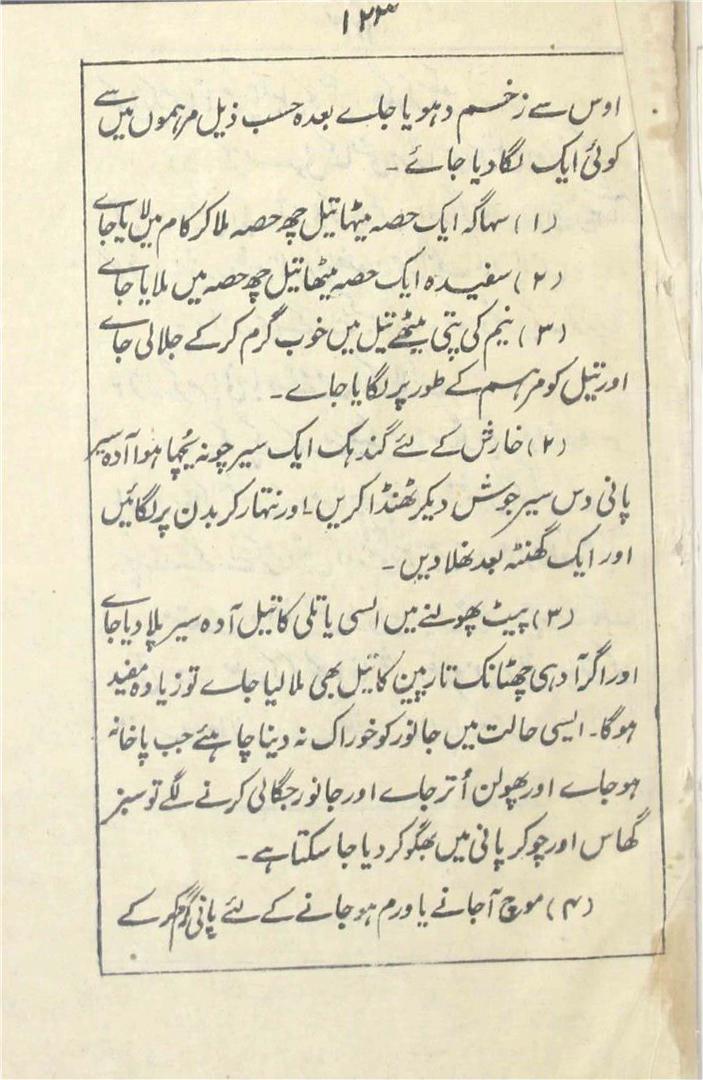 ۱۲۳
اوس سے زخم دہویا جاے بعدہ حسب ذیل مرہموں میں سے
کوئی ایک لگا دیا جائے ۔
(۱) سہاگہ ایک حصہ میٹھا تیل چھ حصہ ملا کر کام میں لایا جاے
(۲) سفیدہ ایک حصہ میٹھا تیل چھ حصہ میں ملایا جاے
(۳) نیم کی پتی میٹھے تیل میں خوب گرم کر کے جلالی جاے
اور تیل کو مرہم کے طور پر لگایا جاے ۔
(۲) خارش کے لئے گندہک ایک سیر چونہ بُجھا ہوا آدہ سیر
پانی دس سیر جوش دیکر ٹھنڈا کریں ۔ اور نتہار کر بدن پر لگائیں
اور ایک گھنٹہ بعد نہلا دیں ۔
(۳) پیٹ پھولنے میں السی یا تلی کا تیل آدہ سیر پلا دیا جاے
اور اگر آدہی چھٹانک تارپین کا تیل بھی ملا لیا جاے تو زیادہ مفید
ہوگا ۔ ایسی حالت میں جانور کو خوراک نہ دینا چاہئے جب پاخانہ
ہو جاے اور پھولن اُتر جاے اور جانور جگالی کرنے لگے تو سبز
گھاس اور چوکر پانی میں بھگو کر دیا جا سکتا ہے ۔
(۴) موچ آجانے یا ورم ہو جانے کے لئے پانی گرم کر کے